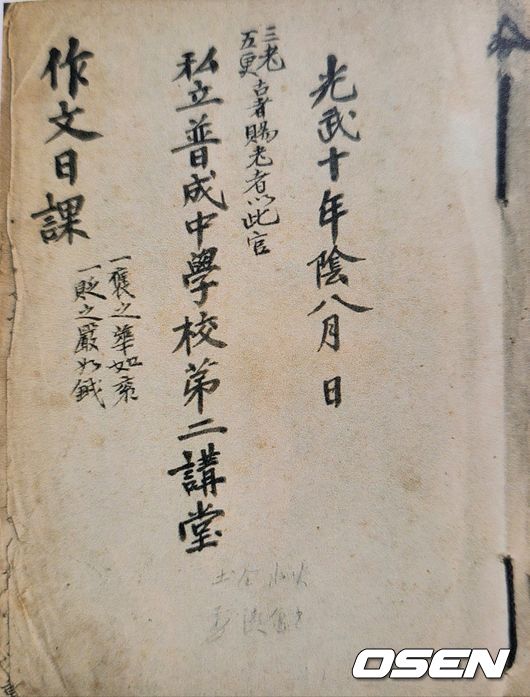 光武十年陰八月 日
三老
五更
古者賜老者以此官
私立普成中學校第二講堂
作文日課
一褒之華如袞
一貶之嚴如鉞
OSEN